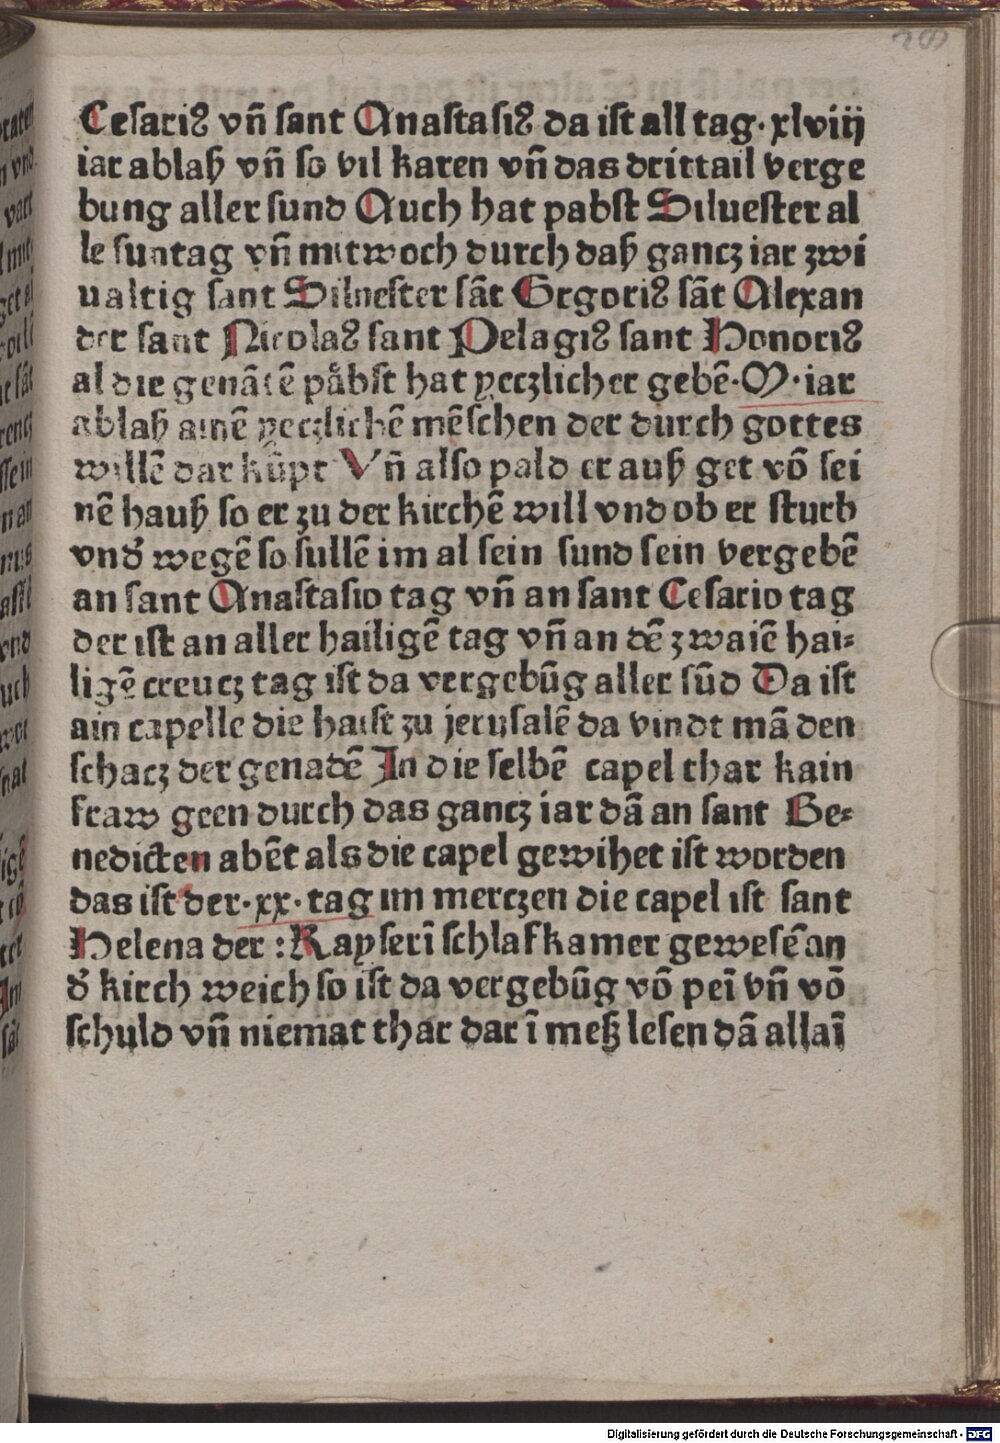 28
Cesariꝰ vn̄ sant Anastasiꝰ da ist all tag·xlviij
iar ablaß vn̄ so vil karen vn̄ das drittail verge
bung aller sund Auch hat pabst Siluester al
le suntag vn̄ mitwoch durch daß gancz iar zwi
ualtig sant Siluester sāt Grgoriꝰ sāt Alexan
der sant Nicolaꝰ sant Pelagiꝰ sant Honoriꝰ
al die genātē paͤbst hat yeczlicher gebē·M·iar
ablaß ainē yeczlichē mēschen der durch gottes
willē dar kūpt Vn̄ also pald er auß get vō sei
nē hauß so er zu der kirchē will vnd ob er sturb
vnd᷑ wegē so sullē im al sein sund sein vergebē
an sant Anastasio tag vn̄ an sant Cesario tag
der ist an aller hailigē tag vn̄ an dē zwaiē hai⸗
ligē creucz tag ist da vergebūg aller sūd Da ist
ain capelle die haist zu jerusalē da vindt mā den
schacz der genadē In die selbē capel thar kain
fraw geen durch das gancz iar dā an sant Be⸗
nedicten abēt als die capel gewihet ist worden
das ist der·xx·tag im merczen die capel ist sant
Helena der :Kayserī schlafkamer gewesē an
d᷑ kirch weich so ist da vergebūg vō peī vn̄ vō
schuld vn̄ niemat thar dar ī meß lesen dā allaī
Digitalisierung gefördert durch die Deutsche Forschungsgemeinschaft - DFG